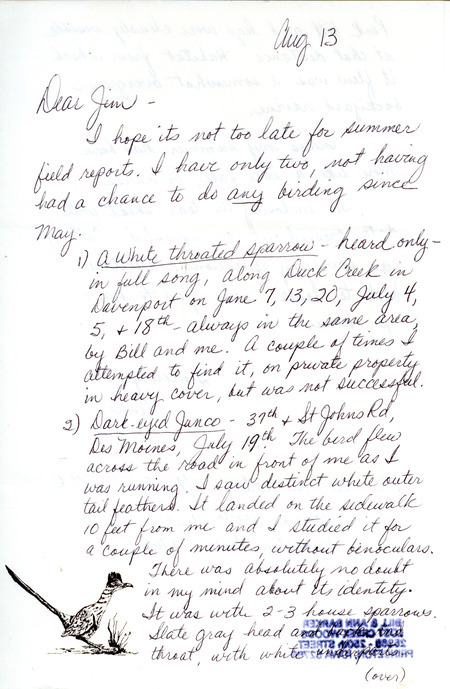 Aug 13
Dear Jim -
I hope its not too late for summer
field reports. I have only two, not having
had a chance to do any birding since
May.
1) A White throated sparrow - heard only -
in full song, along Duck Creek in
Davenport on June 7, 13, 20, July 4,
5, & 18th - always in the same area,
by Bill and me. A couple of times I
attempted to find it, on private property
in heavy cover, but was not successful.
2) Dark-eyed Junco - 37th & St Johns Rd,
Des Moines, July 19th The bird flew
across the road in front of me as I
was running. I saw distinct white outer
tail feathers. It landed on the sidewalk
10 feet from me and I studied it for
a couple of minutes, without binoculars.
There was absolutely no doubt
in my mind about its identity.
It was with 2-3 house sparrows.
Slate gray head and
throat, with white underparts
(over)
BILL & ANN BARKER
STREET
PRINCETON